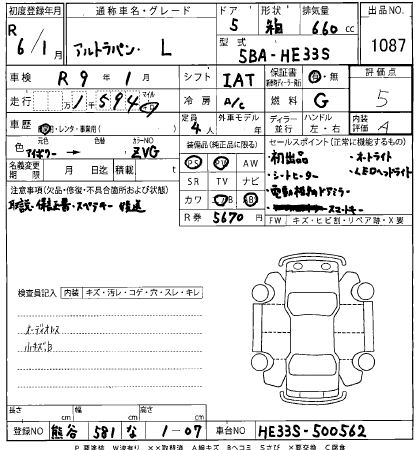 初度登録年月 通称車名・グレード ドア 形状 排気量 出品NO
R 6/1月 アルトラパン・L 5 箱 660 cc 1087
型式 5BA-HE33S
車検 R 9年 1月 シフト IAT 保証書 有・無 評価点
走行 万 1千 594 マイル 冷房 A/C 燃料 G 5
車歴 自家・レンタ・事業用( ) 定員 4人 外車モデル 年 ディーラー 並行 ハンドル 左・右 内装評価 A
色 元色 アイボリー → カラーNO ZVG
装備品(純正品に限る) セールスポイント(正常に機能するもの)
名義変更期限 月 日迄 積載 t
PS PW AW ・初出品 ・オートライト
SR TV ナビ ・シートヒーター ・LEDヘッドライト
注意事項(欠品・修復・不具合箇所および状態) ・電動格納ドアミラー
取説・保証書・スペアキー 後送 カワ スマートキー
R券 5670円 FW キズ・ヒビ割・リペア跡・X要
検査員記入 内装 キズ・汚レ・コゲ・穴・スレ・キレ
オーディオレス
小キズB
長さ cm 幅 cm 高さ cm
登録NO 熊谷 581 な 1-07 車台NO HE33S-500562
P 要塗装 W波有り XX取替済 A線キズ Bヘコミ Sさび X要交換 C腐食